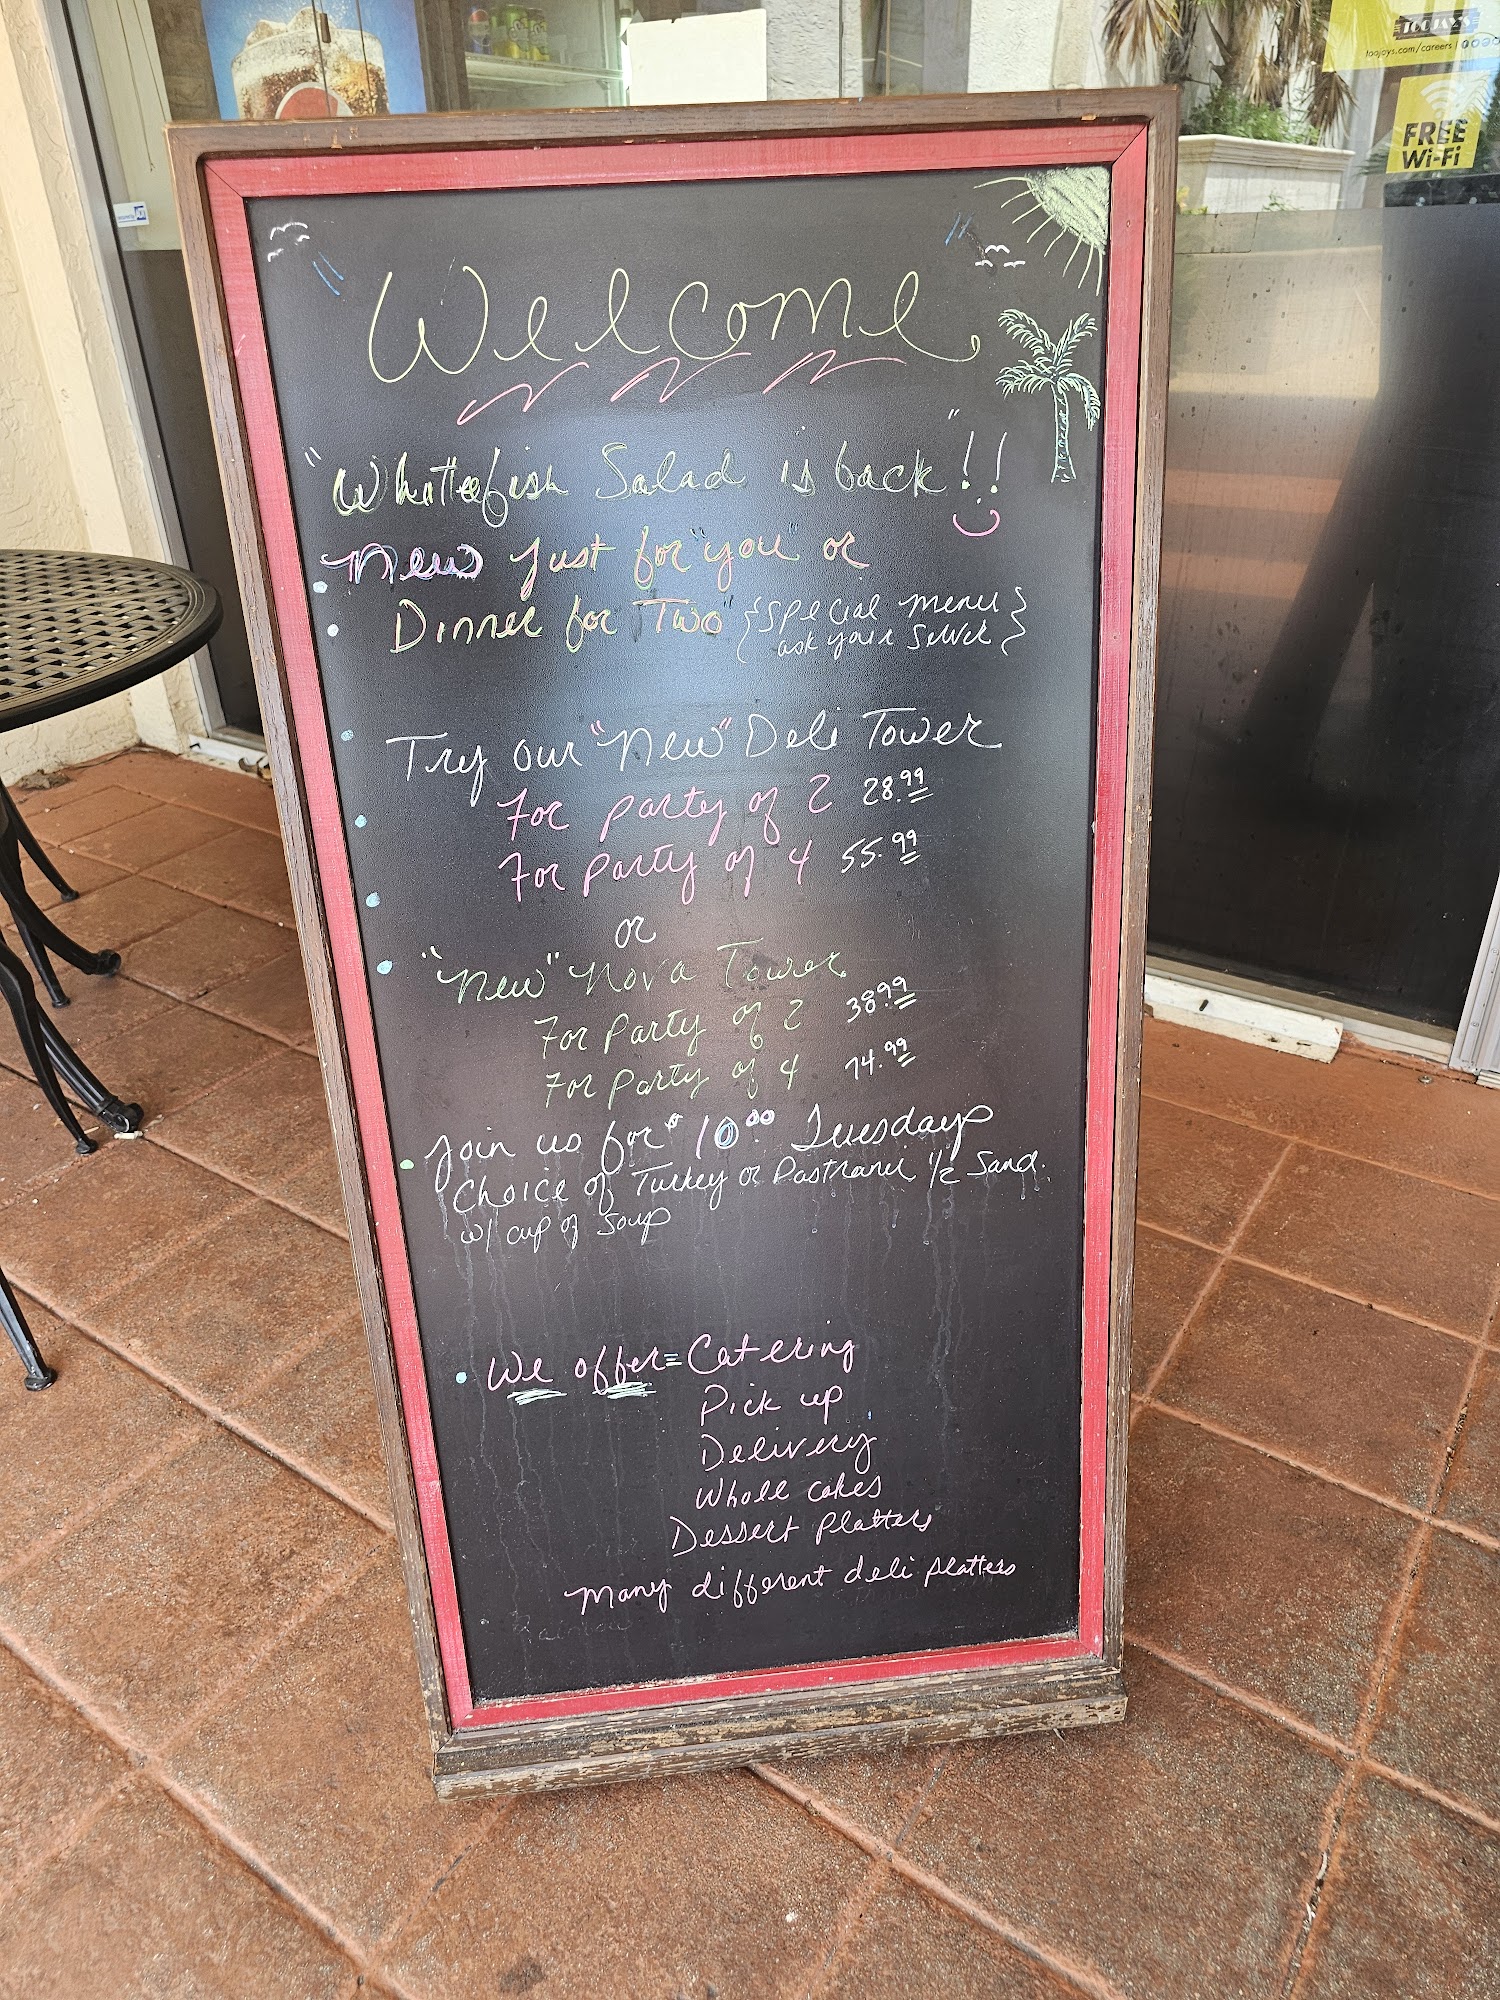 TOOJAY'S
toojays.com/careers
FREE
Wi-Fi
Welcome
"Whitefish Salad is back"!!
New Just for "you" or
Dinner for "Two" {Special menu
ask your server}
Try our "New" Deli Tower
For party of 2 28.99
For party of 4 55.99
or
"New" Nova Tower
For party of 2 38.99
For party of 4 74.99
Join us for $10.00 Tuesdays
Choice of Turkey or Pastrami 1/2 Sand.
w/ cup of soup
We offer= Catering
Pick up
Delivery
Whole cakes
Dessert Platters
Many different deli platters
Rainbow